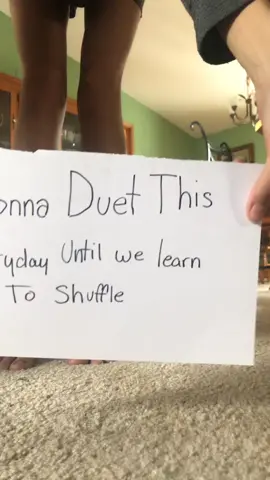 onna Duet This
ryday Until we learn
To Shuffle